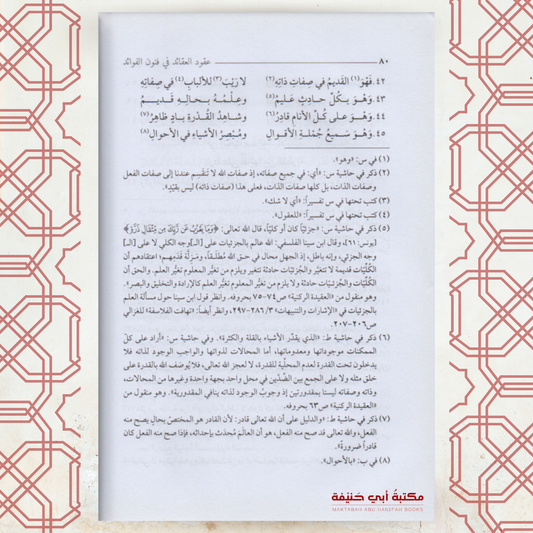 ٨٠ عقود العقائد في فنون الفوائد
٤٢. فَهْوَ(١) القَديمُ في صِفاتِ ذاتِهِ(٢) لا رَيْبَ(٣) للألبابِ(٤) في صِفاتِهِ
٤٣. وَهْوَ بِكُلِّ حادِثٍ عَليمُ(٥) وعِلْمُهُ بحالِهِ قَديمُ
٤٤. وَهْوَ على كُلِّ الأنامِ قادِرُ(٦) وشاهِدُ القُدْرةِ بادٍ ظاهِرُ(٧)
٤٥. وَهْوَ سَميعُ جُملةِ الأقوالِ ومُبْصِرُ الأشياءِ في الأحوالِ(٨)
(١) في س: «وهو».
(٢) ذكر في حاشية س: «أي: في جميع صفاته، إذ صفات الله لا تنقسم عندنا إلى صفات الفعل
وصفات الذات، بل كلها صفات الذات، فعلى هذا (صفات ذاته) ليس بقيدٍ».
(٣) كتب تحتها في س تفسيراً: «أي لا شك».
(٤) كتب تحتها في س تفسيراً: «للعقول».
(٥) ذكر في حاشية س: «جزئيّاً كان أو كليّاً، قال الله تعالى: ﴿وَمَا يَعْزُبُ عَن رَّبِّكَ مِن مِّثْقَالِ ذَرَّةٍ﴾
[يونس: ٦١]، وقال ابن سينا الفلسفي: الله عالم بالجزئيات على [ال]وجه الكلي لا على [ال]
وجه الجزئي، وإنه باطل، إذ الجهل محال في حق الله مُطلقاً، ومَزِلَّة قَدَمِهم: اعتقادهم أن
الكُلِّيّات قديمة لا تتغيَّر والجُزئيات حادثة تتغير ويلزم من تغيُّر المعلوم تغيُّر العلم. والحق أن
الكُلِّيّات والجُزئيات حادثة ولا يلزم من تغيُّر المعلوم تغيُّر العلم كالإرادة والتخليق والبصر».
وهو منقول من «العقيدة الركنية» ص٧٤-٧٥ بحروفه. وانظر قول ابن سينا حول مسألة العلم
بالجزئيات في «الإشارات والتنبيهات» ٣/ ٢٨٦-٢٩٧، وانظر أيضاً: «تهافت الفلاسفة» للغزالي
ص٢٠٦-٢٠٧.
(٦) ذكر في حاشية ط: «الذي يقدِّر الأشياء بالقلة والكثرة». وفي حاشية س: «أراد على كل
الممكنات موجوداتها ومعدوماتها، أما المحالات لذواتها والواجب الوجود لذاته فلا
يدخلون تحت القدرة لعدم المحلّية للقدرة، لا لعجز الله تعالى، فلا يُوصف الله بالقدرة على
خلق مثله ولا على الجمع بين الضِّدَّين في محل واحد بجهة واحدة وغيرها من المحالات،
وذاته وصفاته ليستا بمقدورتين إذ وجوبُ الوجود لذاته ينافي المقدورية». وهو منقول من
«العقيدة الركنية» ص٦٣ بحروفه.
(٧) ذكر في حاشية ط: «والدليل على أن الله تعالى قادر: لأن القادر هو المختصّ بحالٍ يصح منه
الفعل، والله تعالى قد صح منه الفعل، هو أن العالَم مُحدَث بإحداثه، فإذا صح منه الفعل كان
قادراً ضرورةً».
(٨) في ب: «بالأحوال».
مكتبة أبي حنيفة
MAKTABAH ABU HANIFAH BOOKS